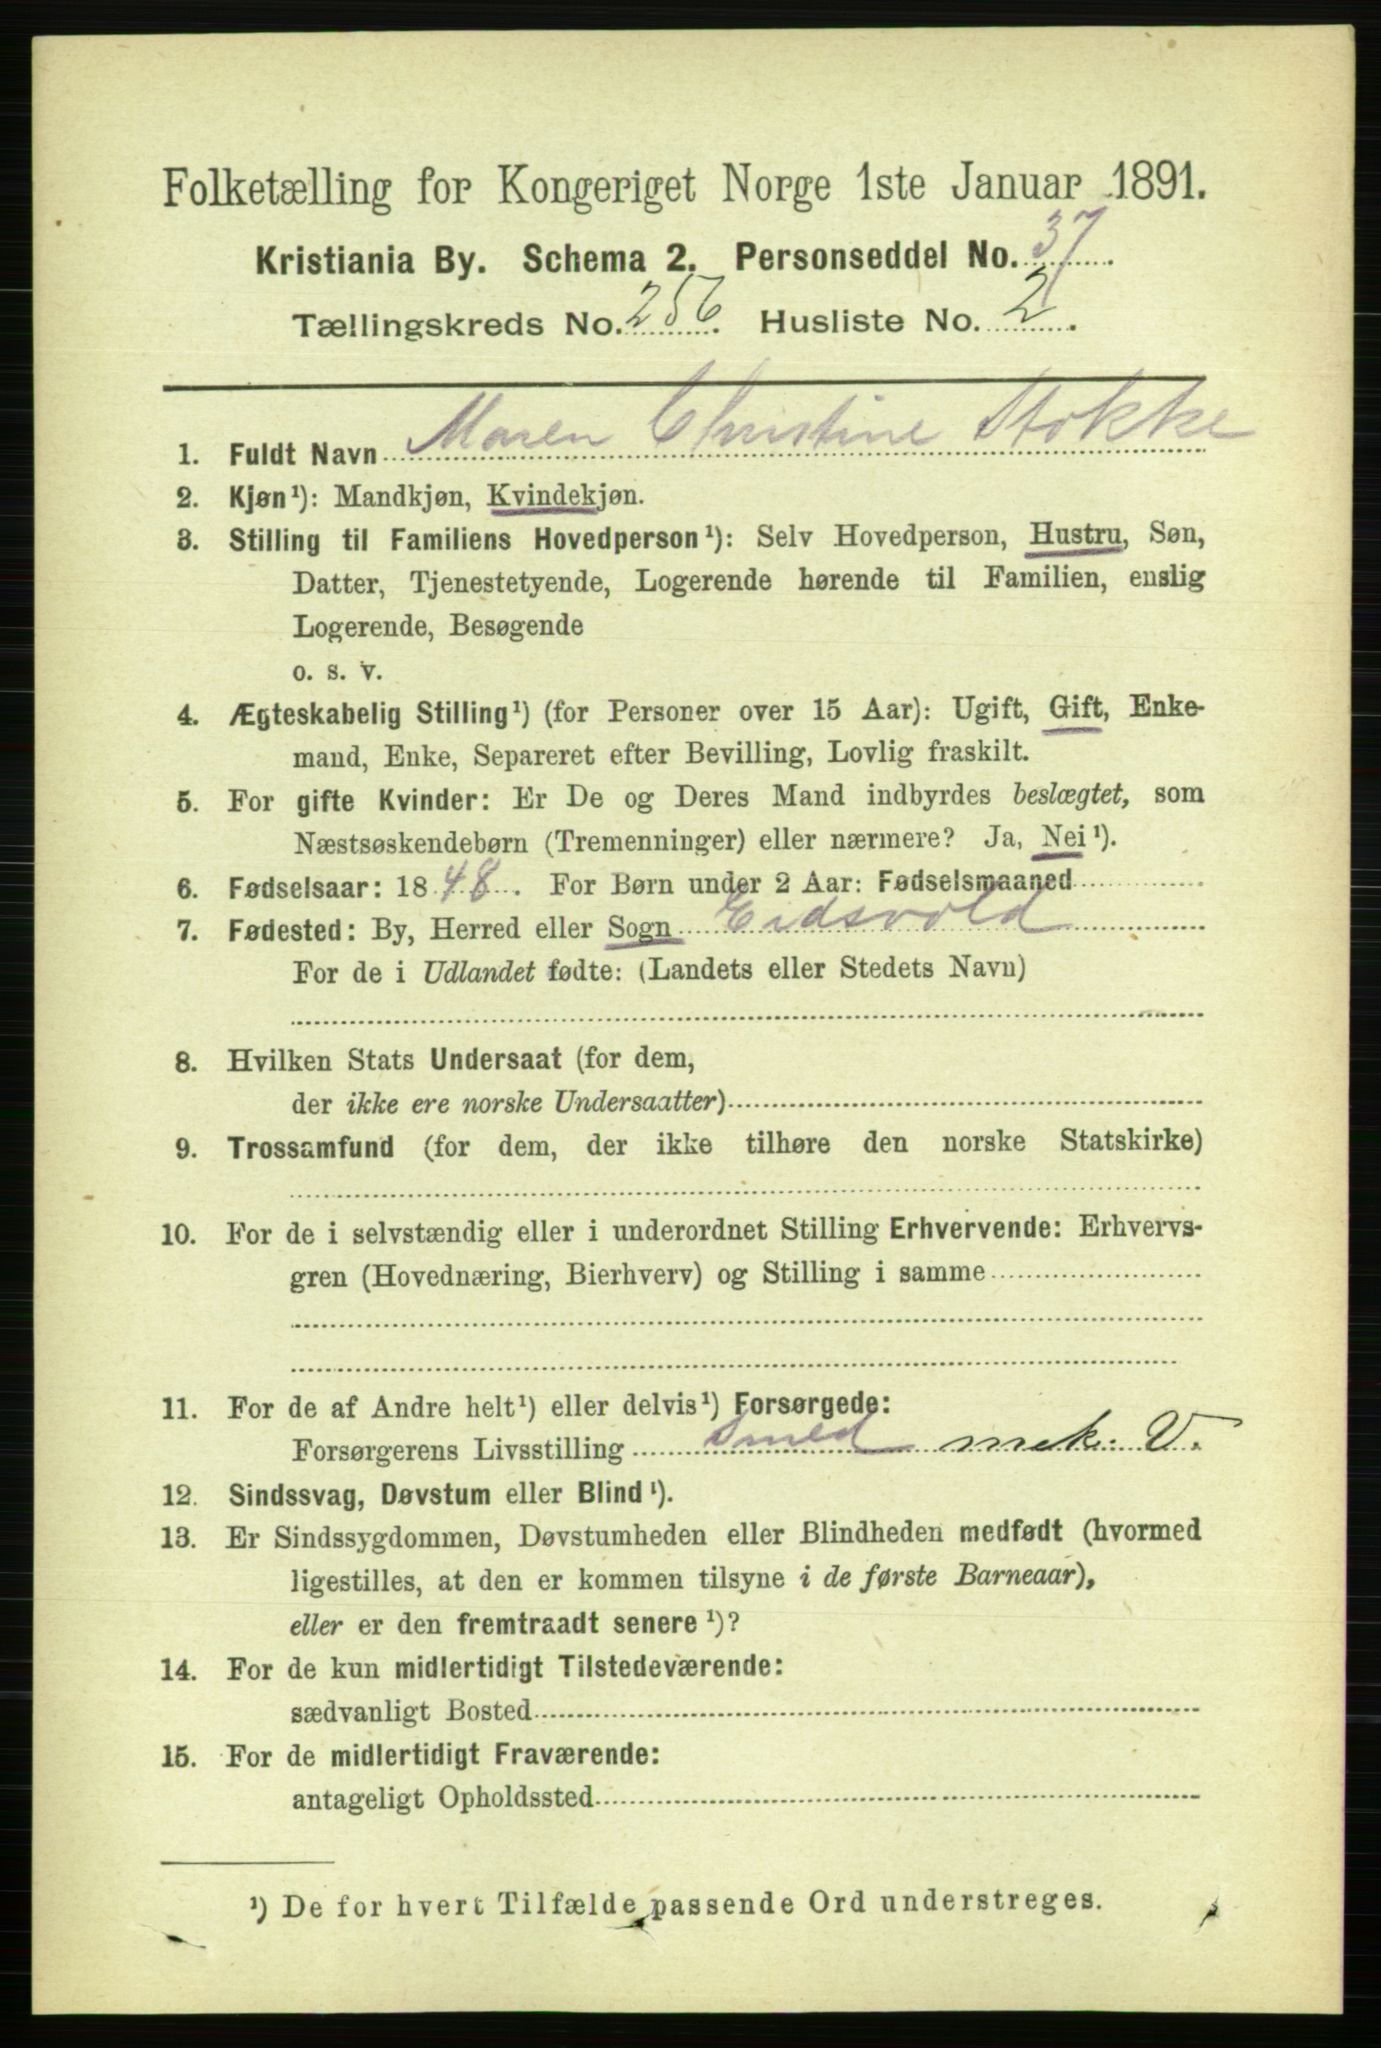 Folketælling for Kongeriget Norge 1ste Januar 1891.
Kristiania By. Schema 2. Personseddel No. 37
Tællingskreds No. 256. Husliste No. 2.
1. Fuldt Navn Maren Christine Stokke
2. Kjøn¹): Mandkjøn, Kvindekjøn.
3. Stilling til Familiens Hovedperson¹): Selv Hovedperson, Hustru, Søn,
Datter, Tjenestetyende, Logerende hørende til Familien, enslig
Logerende, Besøgende
o. s. v.
4. Ægteskabelig Stilling¹) (for Personer over 15 Aar): Ugift, Gift, Enke-
mand, Enke, Separeret efter Bevilling, Lovlig fraskilt.
5. For gifte Kvinder: Er De og Deres Mand indbyrdes beslægtet, som
Næstsøskendebørn (Tremenninger) eller nærmere? Ja, Nei¹).
6. Fødselsaar: 1848. For Børn under 2 Aar: Fødselsmaaned
7. Fødested: By, Herred eller Sogn Eidsvold
For de i Udlandet fødte: (Landets eller Stedets Navn)
8. Hvilken Stats Undersaat (for dem,
der ikke ere norske Undersaatter)
9. Trossamfund (for dem, der ikke tilhøre den norske Statskirke)
10. For de i selvstændig eller i underordnet Stilling Erhvervende: Erhvervs-
gren (Hovednæring, Bierhverv) og Stilling i samme
11. For de af Andre helt¹) eller delvis¹) Forsørgede:
Forsørgerens Livsstilling Smed mek. V.
12. Sindssvag, Døvstum eller Blind¹).
13. Er Sindssygdommen, Døvstumheden eller Blindheden medfødt (hvormed
ligestilles, at den er kommen tilsyne i de første Barneaar),
eller er den fremtraadt senere¹)?
14. For de kun midlertidigt Tilstedeværende:
sædvanligt Bosted
15. For de midlertidigt Fraværende:
antageligt Opholdssted
¹) De for hvert Tilfælde passende Ord understreges.